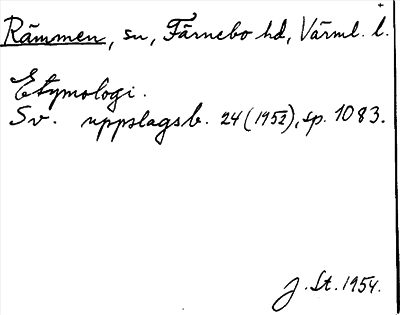 Rämmen, sn, Färnebo hd, Värml. l.
Etymologi.
Sv. uppslagsb. 24 (1952), sp. 1083.
J. St. 1954.